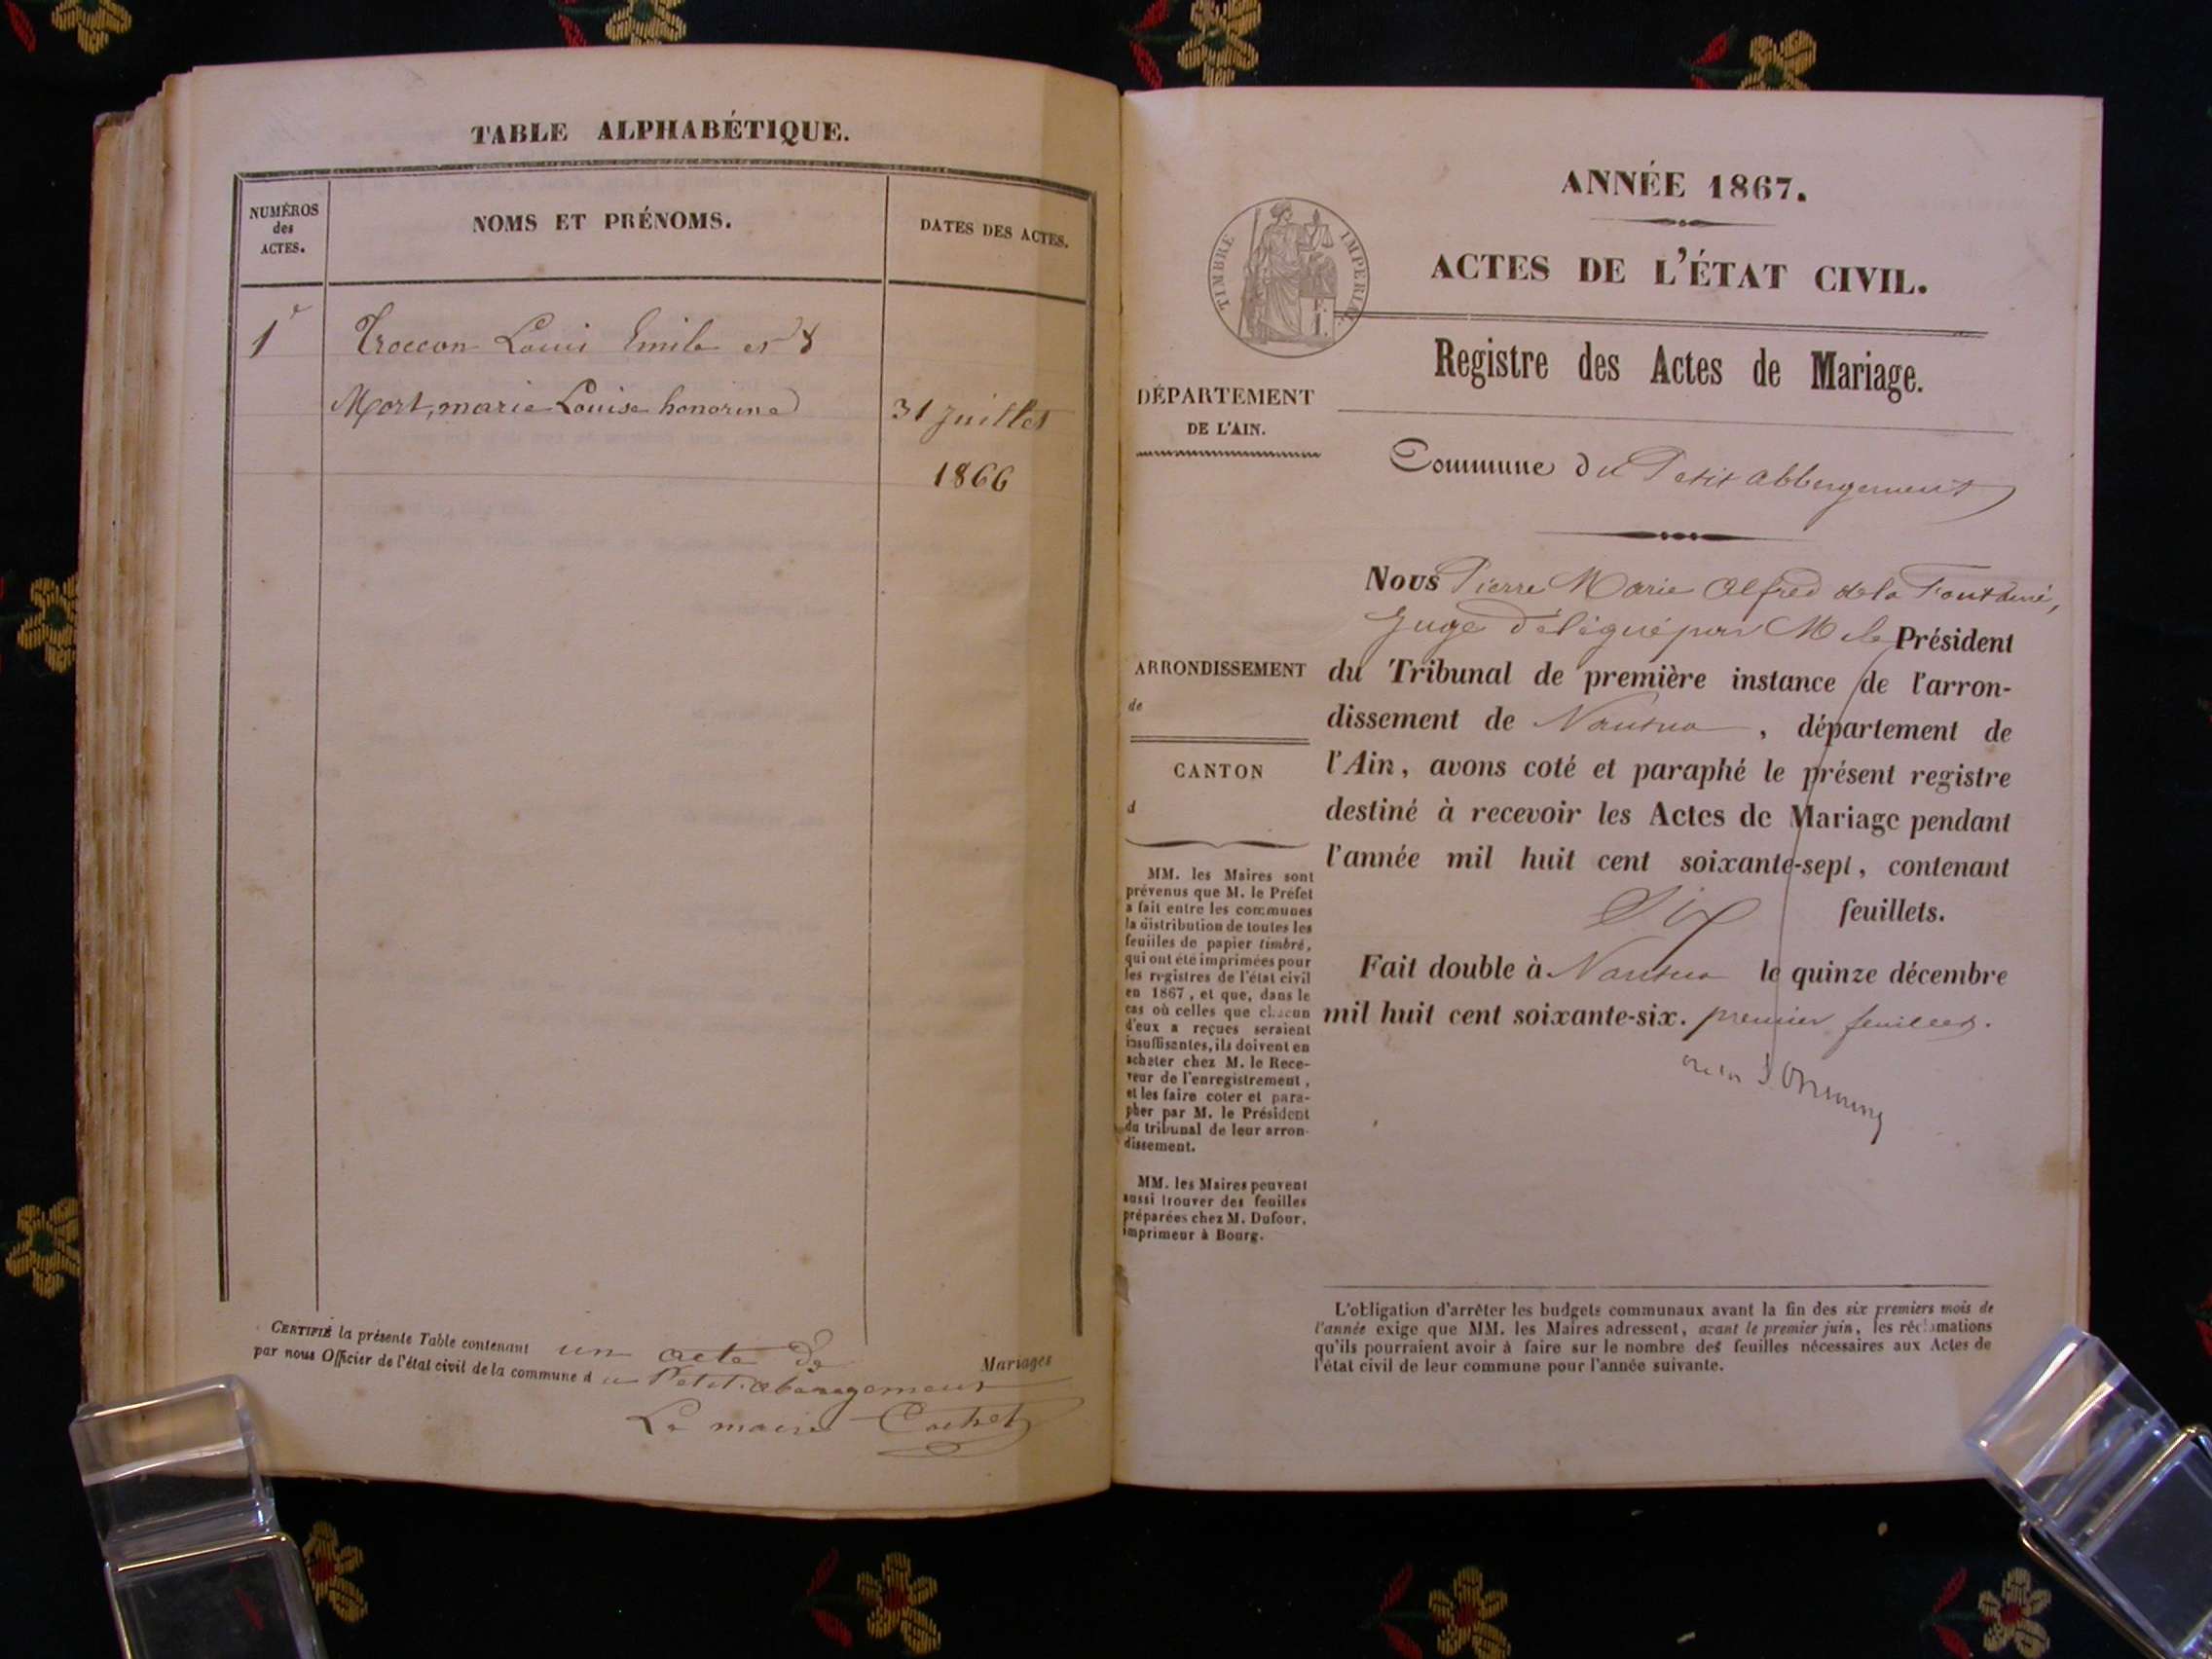 TABLE ALPHABÉTIQUE.
NUMÉROS
des
ACTES.
NOMS ET PRÉNOMS.
DATES DES ACTES.
1
Troccon Louis Emile et
Mort, marie Louise honorine
31 Juillet
1866
CERTIFIÉ la présente Table contenant un acte de Mariages
par nous Officier de l'état civil de la commune d u Petit-abergement
Le maire Cochet
ANNÉE 1867.
ACTES DE L'ÉTAT CIVIL.
TIMBRE IMPERIAL
Registre des Actes de Mariage.
DÉPARTEMENT
DE L'AIN.
Commune du Petit abbergement
ARRONDISSEMENT
de
CANTON
d
MM. les Maires sont
prévenus que M. le Préfet
a fait entre les communes
la distribution de toutes les
feuilles de papier timbré,
qui ont été imprimées pour
les registres de l'état civil
en 1867, et que, dans le
cas où celles que chacun
d'eux a reçues seraient
insuffisantes, ils doivent en
acheter chez M. le Rece-
veur de l'enregistrement,
et les faire coter et para-
pher par M. le Président
du tribunal de leur arron-
dissement.
MM. les Maires peuvent
aussi trouver des feuilles
préparées chez M. Dufour,
imprimeur à Bourg.
Nous Pierre Marie Alfred de la
Juge délégué par M le Président
du Tribunal de première instance de l'arron-
dissement de Nantua, département de
l'Ain, avons coté et paraphé le présent registre
destiné à recevoir les Actes de Mariage pendant
l'année mil huit cent soixante-sept, contenant
Six feuillets.
Fait double à Nantua le quinze décembre
mil huit cent soixante-six. premier feuillet.
L'obligation d'arrêter les budgets communaux avant la fin des six premiers mois de
l'année exige que MM. les Maires adressent, avant le premier juin, les réclamations
qu'ils pourraient avoir à faire sur le nombre des feuilles nécessaires aux Actes de
l'état civil de leur commune pour l'année suivante.